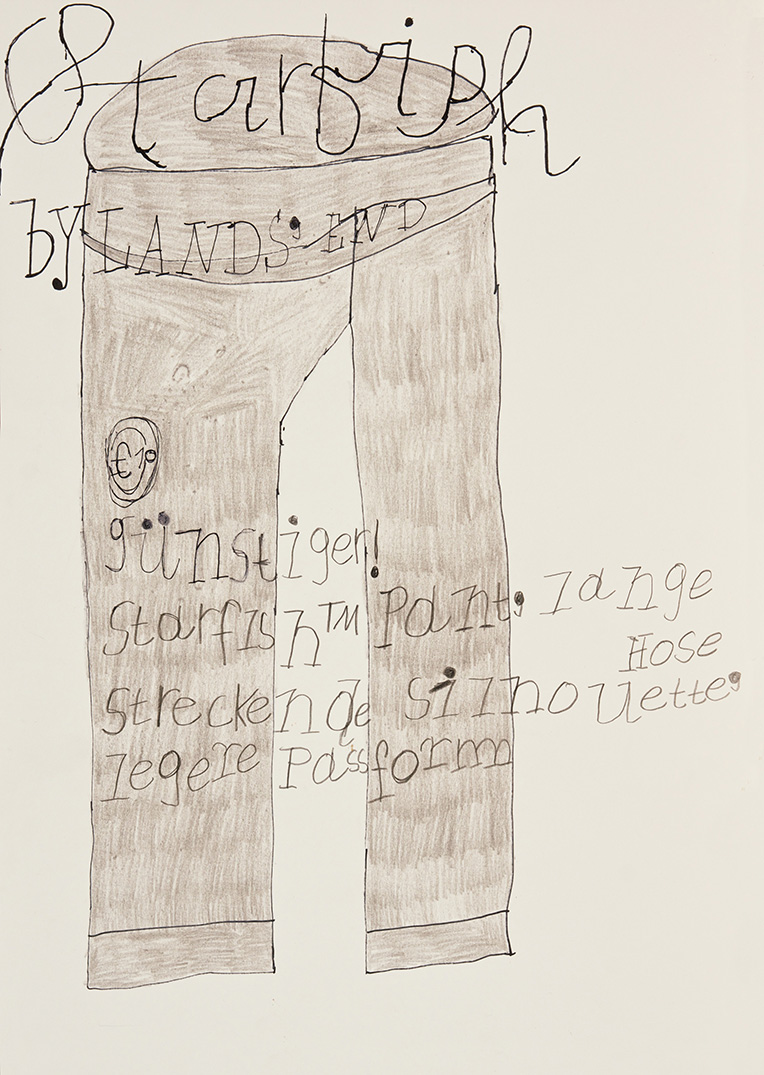 Starfish
by LANDS' END
€10
günstiger!
Starfish™ Pant, lange
Hose
streckende Silhouette,
legere Passform